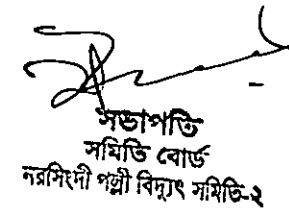 সভাপতি
সমিতি বোর্ড
নরসিংদী পল্লী বিদ্যুৎ সমিতি-২